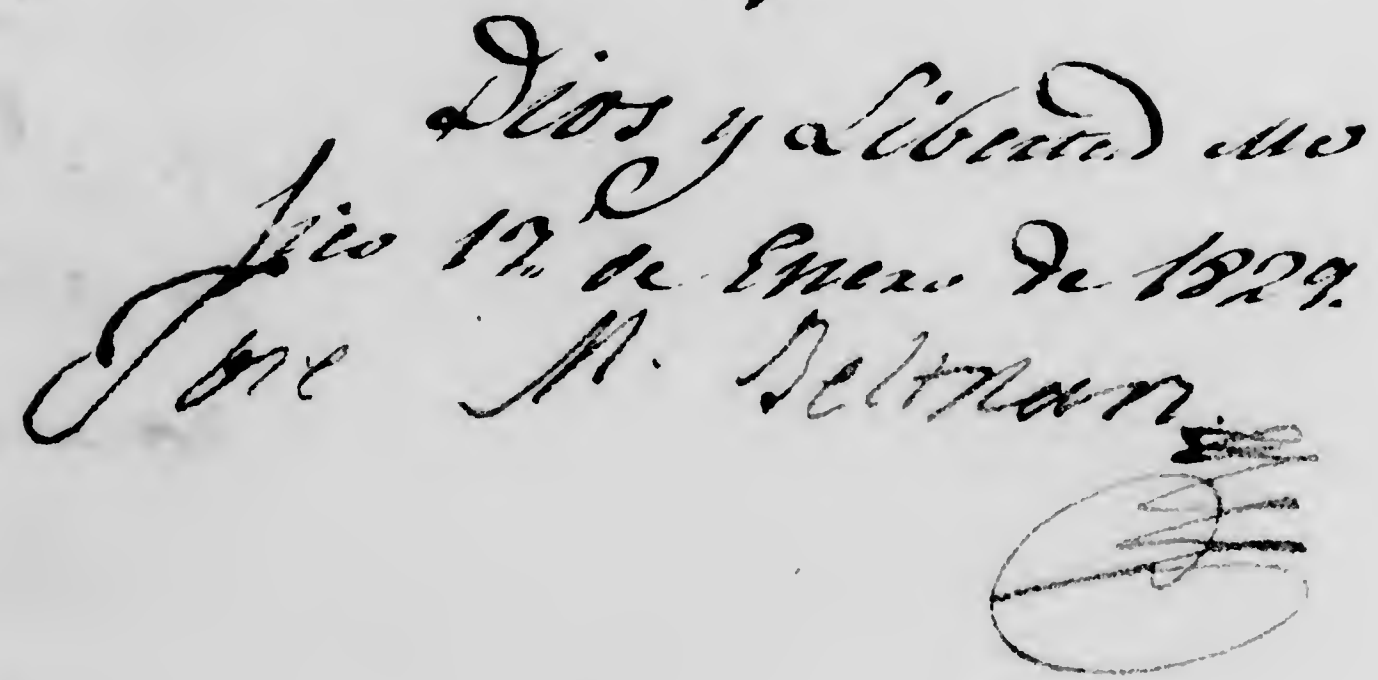 Dios y Libertad Me
jico 12 de Enero de 1829.
Jose M. Beltran